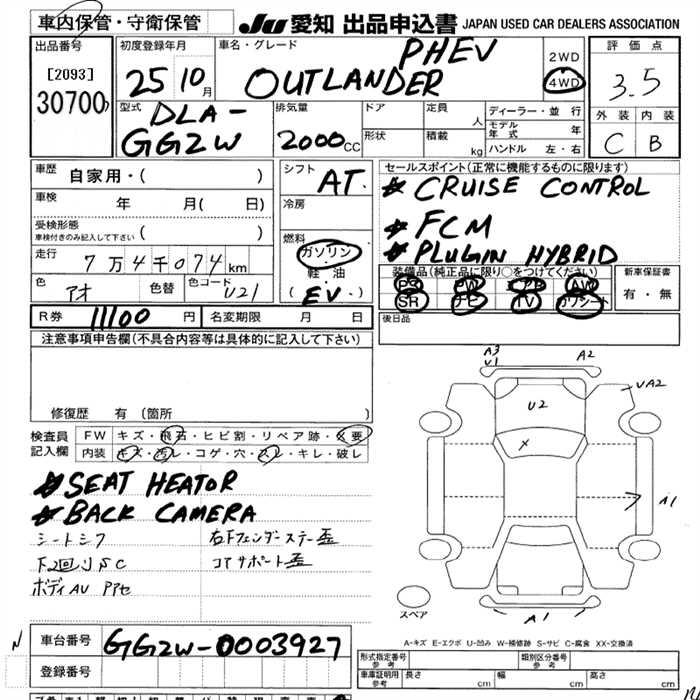 車内保管・守衛保管
JU 愛知 出品申込書 JAPAN USED CAR DEALERS ASSOCIATION
出品番号
[2093]
30700
初度登録年月
25 10月
車名・グレード
PHEV
OUTLANDER
2WD
4WD
評価点
3.5
外装 内装
C B
型式
DLA-
GG2W
排気量
2000cc
ドア
定員
人
形状
積載
kg
ディーラー・並行
モデル年式 年
ハンドル 左・右
車歴
自家用・( )
車検
年 月( 日)
受検形態
車検付きのみ記入して下さい ( )
走行
7万4千074km
色
アオ
色替
色コード
U21
シフト
AT.
冷房
燃料
ガソリン
・
軽油
( EV )
セールスポイント(正常に機能するものに限ります)
CRUISE CONTROL
FCM
PLUGIN HYBRID
装備品(純正品に限り○をつけてください)
PS PW AB AW
SR ナビ TV カワシート
新車保証書
有・無
後日品
R券 11100 円
名変期限 月 日
注意事項申告欄(不具合内容等は具体的に記入して下さい)
修復歴 有(箇所 )
検査員記入欄
FW キズ・飛石・ヒビ割・リペア跡・X要
内装 キズ・汚レ・コゲ・穴・スレ・キレ・破レ
SEAT HEATOR
BACK CAMERA
シートシワ
下2回リSC
ボディAU アセ
右下フェンダーステー歪
コアサポート歪
A3
U1
A2
U2
UA2
X
A1
A1
スペア
A-キズ E-エクボ U-凹み W-補修跡 S-サビ C-腐食 XX-交換済
N
車台番号
GG2W-0003927
登録番号
形式指定番号
参考
類別区分番号
参考
車庫証明用
参考
長さ cm
幅 cm
高さ cm